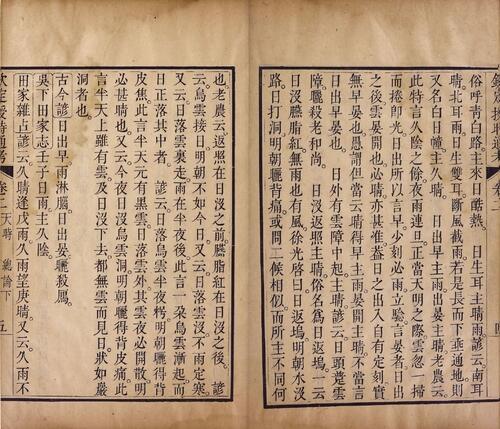 俗呼青白路主來日酷熱。 日生耳主晴雨諺云南耳
晴北耳雨日生雙耳斷風截雨若是長而下垂通地則
又名白日幢主久晴。 日出早主雨出晏主晴老農云
此特言久陰之餘夜雨連旦正當天明之際雲忽一掃
而捲卽光日出所以言早少刻必雨立驗言晏者日出
之後雲晏開也必晴亦甚準蓋日之出入自有定刻實
無早晏也愚謂但當云晴得早主雨晏開主晴不當言
日出早晏也。 日外有雲障中起主晴諺云日頭䟢雲
障曬殺老和尚。 日没返照主晴俗名爲日返塢一云
日沒臙脂紅無雨也有風徐光啓曰日返塢明朝水沒
路日打洞明朝曬背痛或問二候相似而所主不同何
也老農云返照在日沒之前臙脂紅在日沒之後。 諺
云烏雲接日明朝不如今日又云日落雲沒不雨定寒
又云日落雲裏走雨在半夜後此言一朵烏雲漸起而
日正落其中者 諺云日落烏雲半夜枵明朝曬得背
皮焦此言半天元有黑雲日落雲外其雲夜必開散明
必甚晴也又云今夜日沒烏雲洞明朝曬得背皮痛此
言半天上雖有雲及日沒下去都無雲而見日狀如巖
洞者也
古今諺日出早雨淋腦日出晏曬殺鴈
吳下田家志壬子日雨主久陰
田家雜占諺云久晴逢戊雨久雨望庚晴又云久雨不
欽定授時通考 卷二 天時 總論下 五